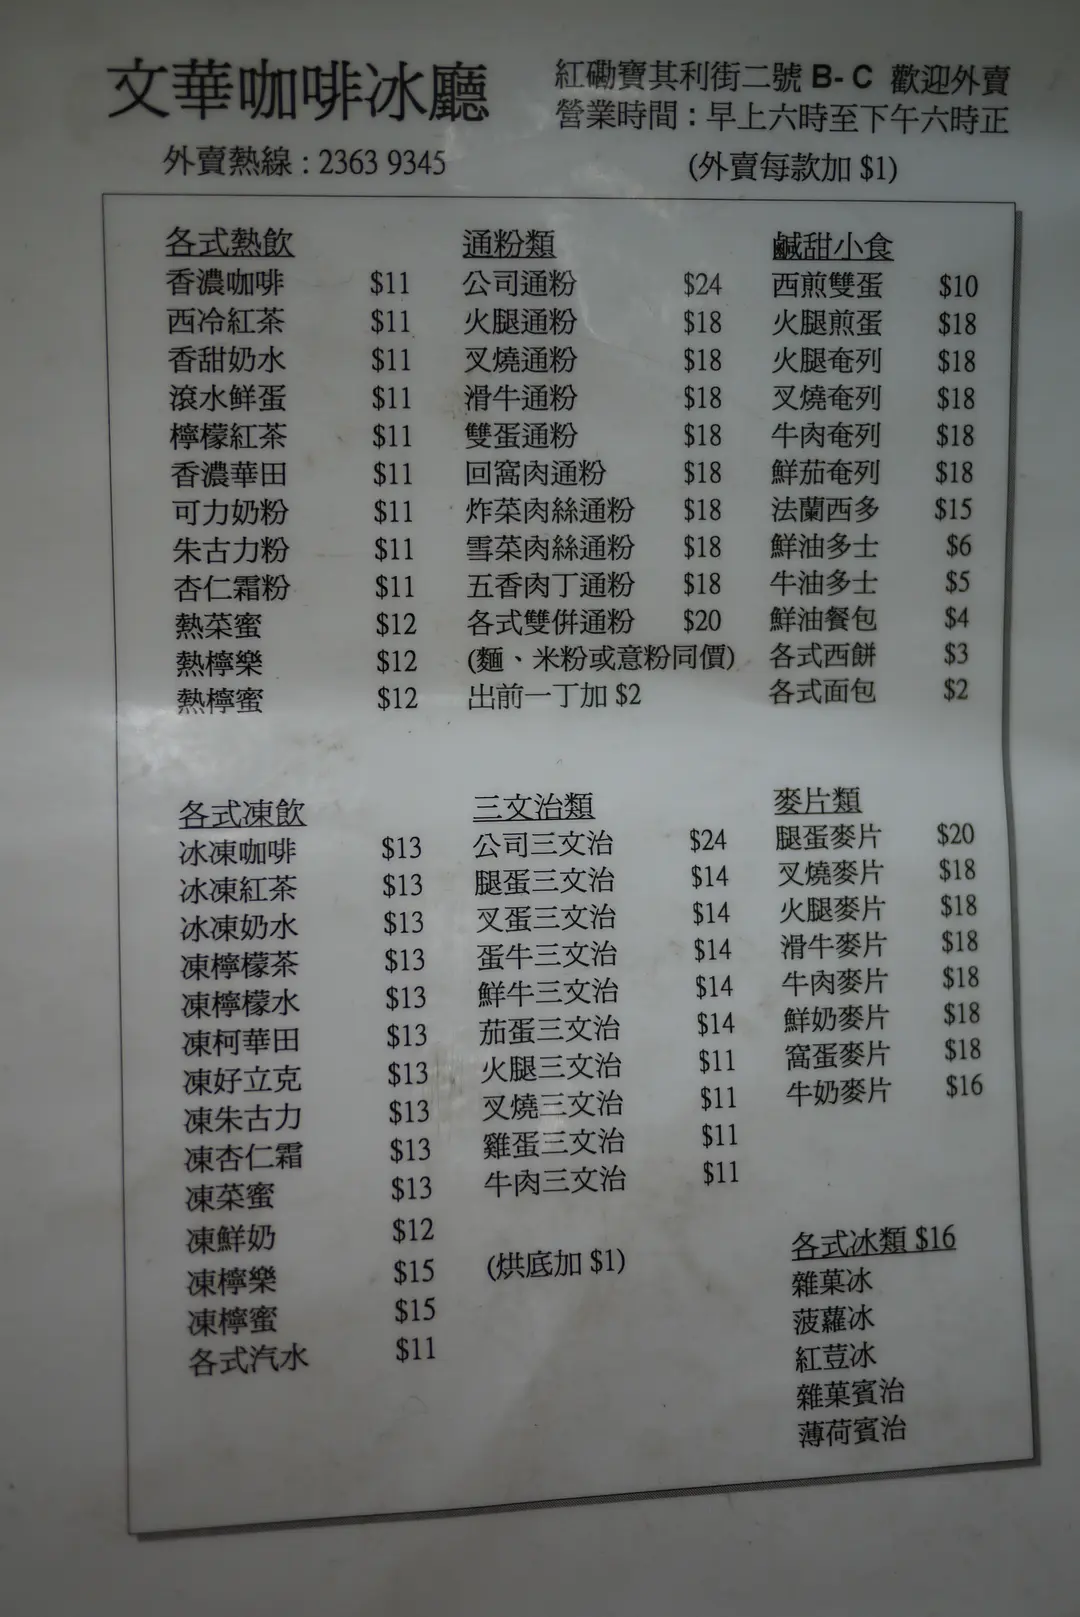 文華咖啡冰廳
紅磡寶其利街二號 B- C 歡迎外賣
營業時間：早上六時至下午六時正
外賣熱線 : 2363 9345
(外賣每款加 $1)
各式熱飲
香濃咖啡 $11
西冷紅茶 $11
香甜奶水 $11
滾水鮮蛋 $11
檸檬紅茶 $11
香濃華田 $11
可力奶粉 $11
朱古力粉 $11
杏仁霜粉 $11
熱菜蜜 $12
熱檸樂 $12
熱檸蜜 $12
通粉類
公司通粉 $24
火腿通粉 $18
叉燒通粉 $18
滑牛通粉 $18
雙蛋通粉 $18
回窩肉通粉 $18
炸菜肉絲通粉 $18
雪菜肉絲通粉 $18
五香肉丁通粉 $18
各式雙併通粉 $20
(麵、米粉或意粉同價)
出前一丁加 $2
鹹甜小食
西煎雙蛋 $10
火腿煎蛋 $18
火腿奄列 $18
叉燒奄列 $18
牛肉奄列 $18
鮮茄奄列 $18
法蘭西多 $15
鮮油多士 $6
牛油多士 $5
鮮油餐包 $4
各式西餅 $3
各式面包 $2
各式凍飲
冰凍咖啡 $13
冰凍紅茶 $13
冰凍奶水 $13
凍檸檬茶 $13
凍檸檬水 $13
凍柯華田 $13
凍好立克 $13
凍朱古力 $13
凍杏仁霜 $13
凍菜蜜 $13
凍鮮奶 $12
凍檸樂 $15
凍檸蜜 $15
各式汽水 $11
三文治類
公司三文治 $24
腿蛋三文治 $14
叉蛋三文治 $14
蛋牛三文治 $14
鮮牛三文治 $14
茄蛋三文治 $14
火腿三文治 $11
叉燒三文治 $11
雞蛋三文治 $11
牛肉三文治 $11
(烘底加 $1)
麥片類
腿蛋麥片 $20
叉燒麥片 $18
火腿麥片 $18
滑牛麥片 $18
牛肉麥片 $18
鮮奶麥片 $18
窩蛋麥片 $18
牛奶麥片 $16
各式冰類 $16
雜菓冰
菠蘿冰
紅荳冰
雜菓賓治
薄荷賓治